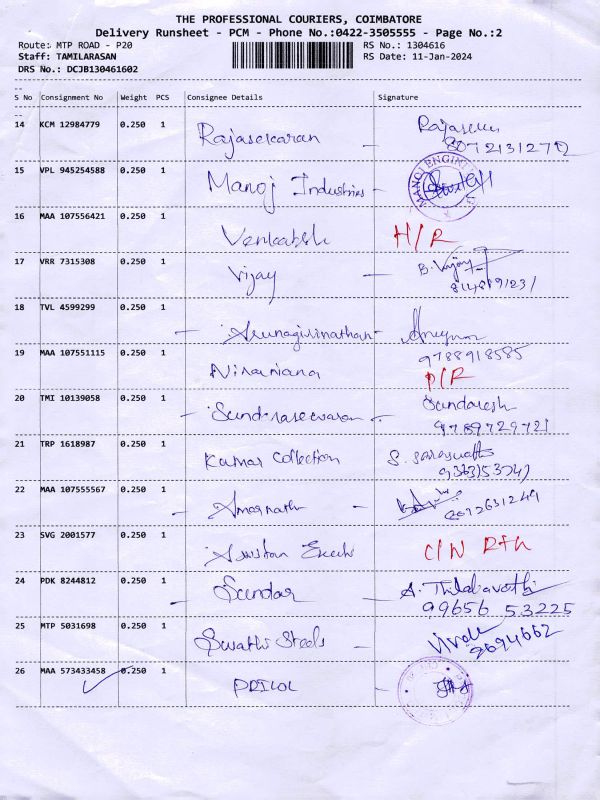 THE PROFESSIONAL COURIERS, COIMBATORE
Delivery Runsheet - PCM - Phone No.:0422-3505555 - Page No.:2
Route: MTP ROAD - P20 RS No.: 1304616
Staff: TAMILARASAN RS Date: 11-Jan-2024
DRS No.: DCJB130461602
S No Consignment No Weight PCS Consignee Details Signature
14 KCM 12984779 0.250 1 Rajasekaran
15 VPL 945254588 0.250 1 Manoj Industries
16 MAA 107556421 0.250 1 Venkatesh H/R
17 VRR 7315308 0.250 1 Vijay B. Vijay
18 TVL 4599299 0.250 1 Arunagirinathan
19 MAA 107551115 0.250 1 Niranjana 9788918585
P/R
20 TMI 10139058 0.250 1 Sundareswaran Sundaresh
9789729721
21 TRP 1618987 0.250 1 Kumar Collection S.
22 MAA 107555567 0.250 1 Amarnath 8072631249
23 SVG 2001577 0.250 1 C/N
24 PDK 8244812 0.250 1 Sundar A. Thilabavathi
99656 53225
25 MTP 5031698 0.250 1 Swathi Steels
26 MAA 573433458 0.250 1 PRICOL